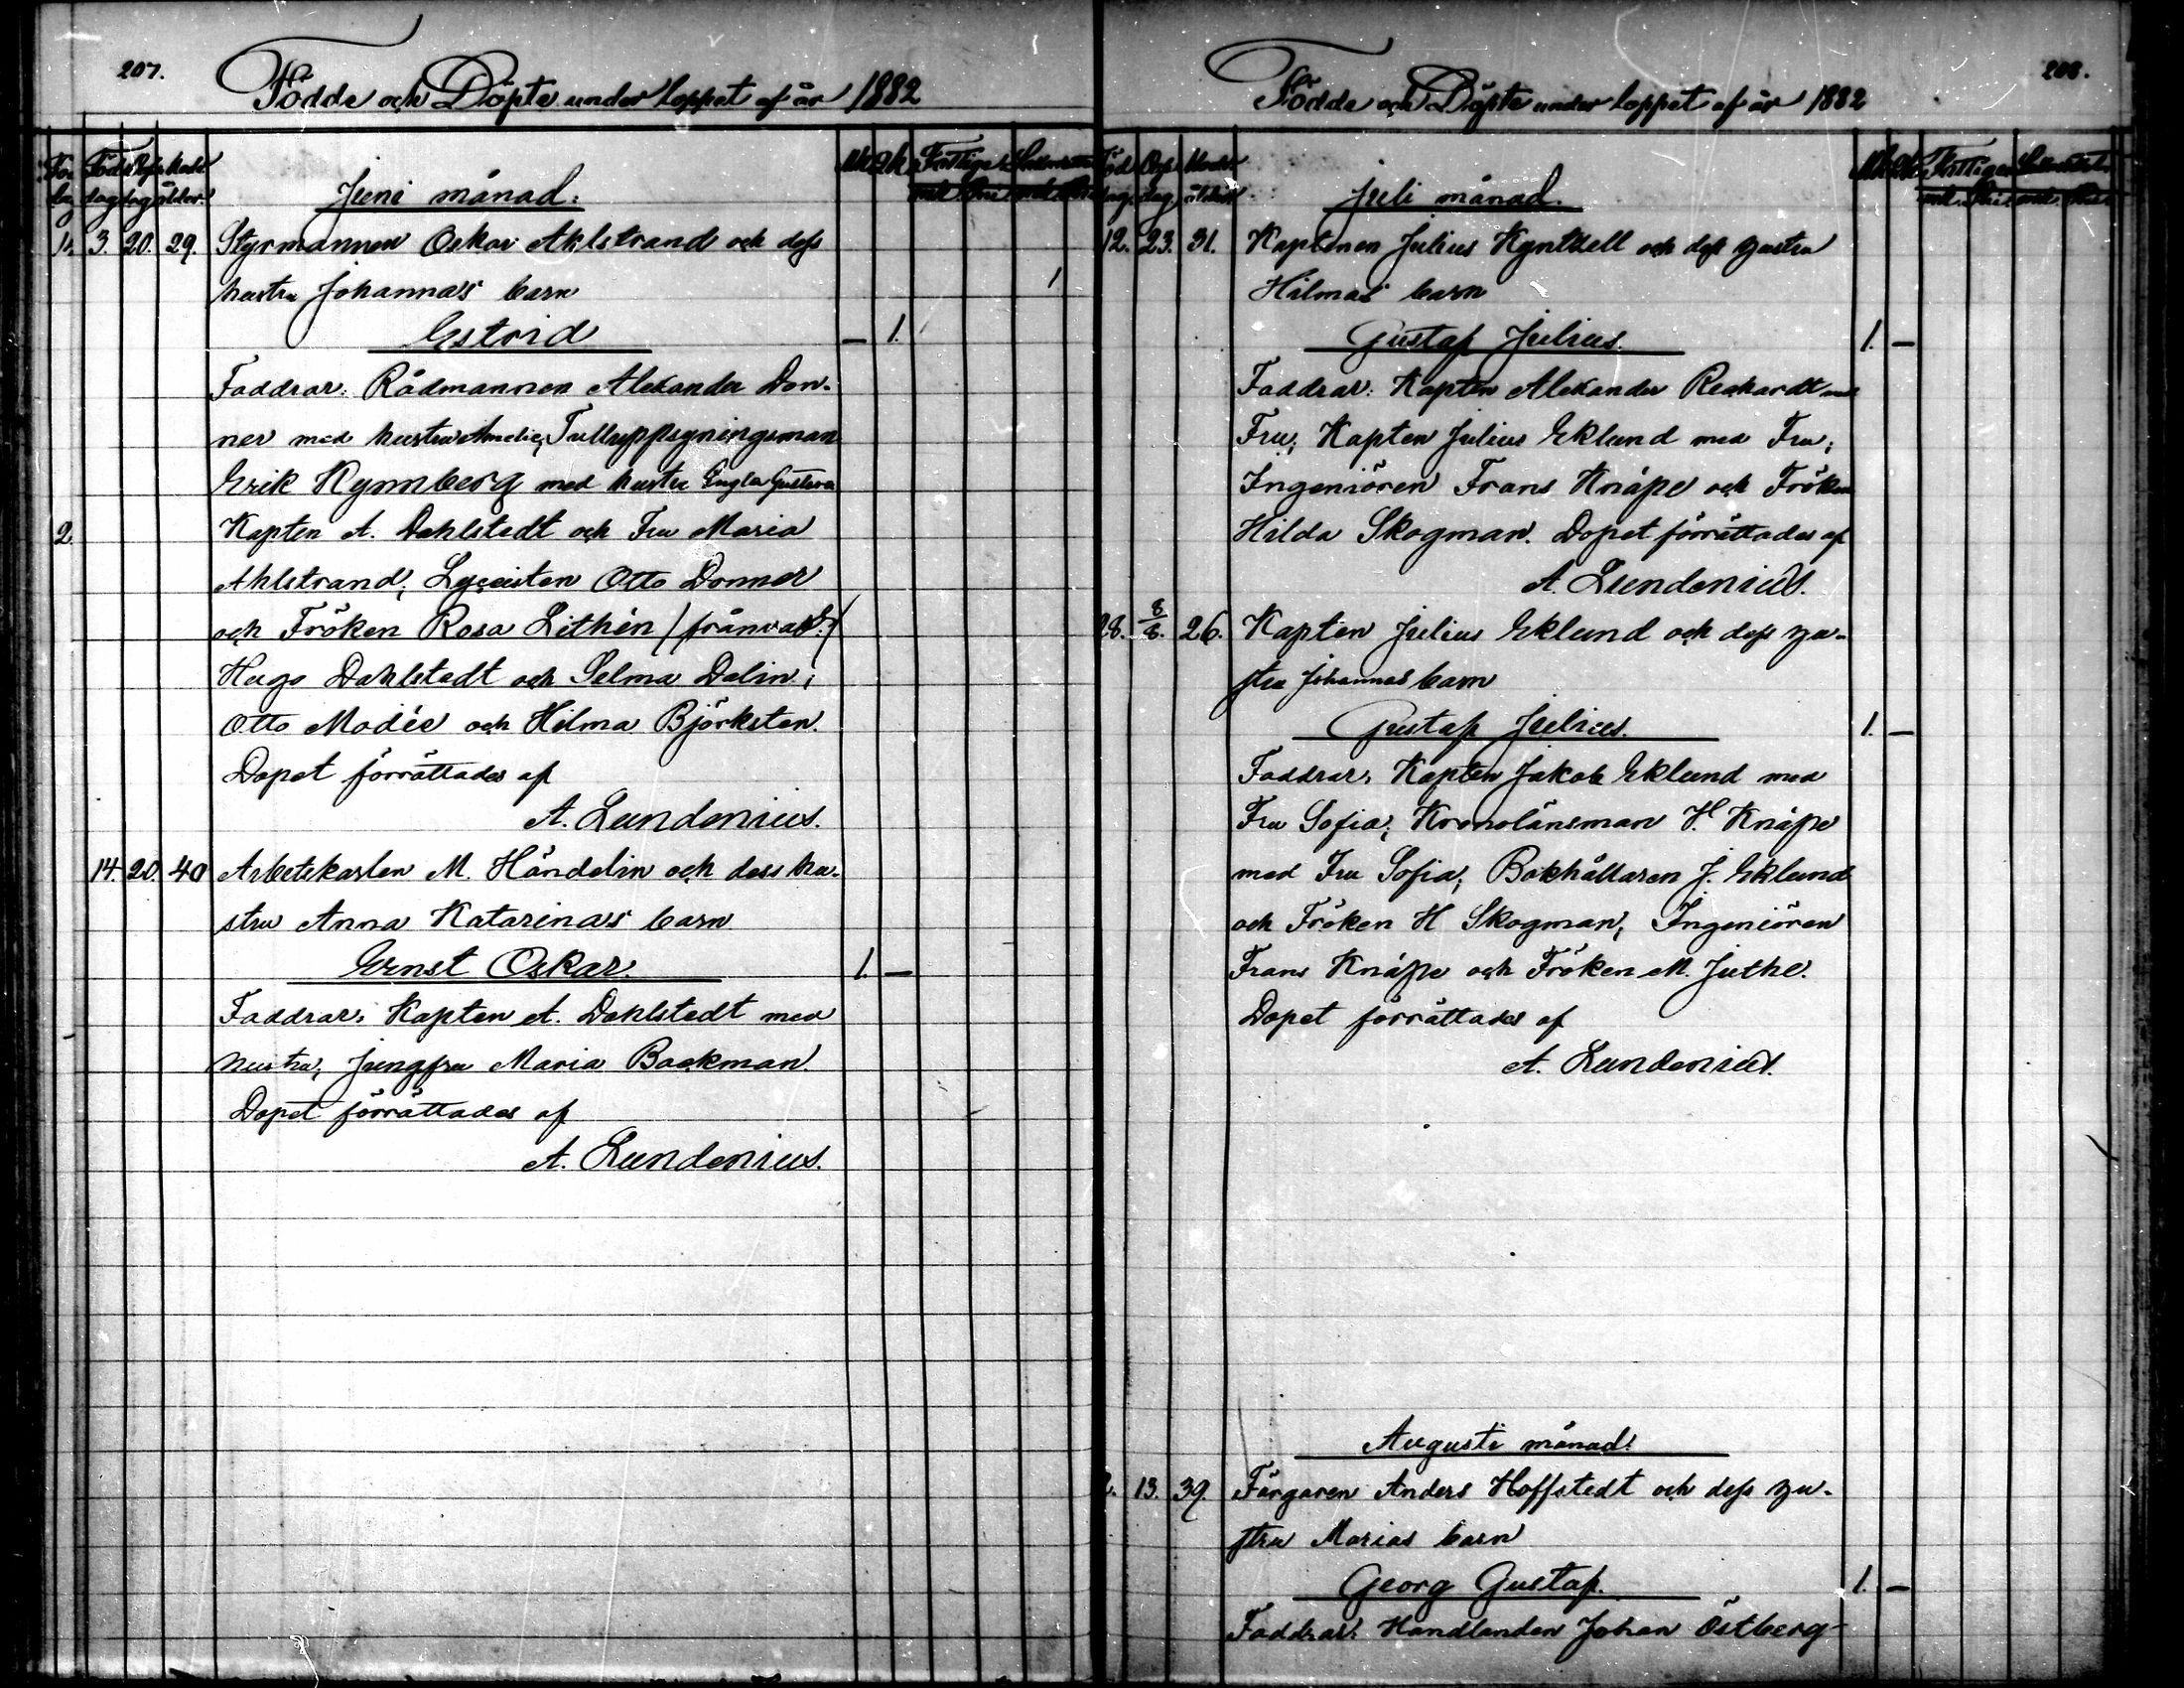 207.
Födde och Döpte under loppet af år 1882
Juni månad.
1. 3. 20. 29. Styrmannen Oskar Ahlstrand och dess
hustru Johannas barn 1
Estrid — 1.
Faddrar: Rådmannen Alexander Don-
ner med hustru Amelie, Tulluppsyningsman
Erik Rymnberg med hustru Engla Gustava
2. Kapten A. Dahlstedt och Fru Maria
Ahlstrand; Lyceisten Otto Donner
och Fröken Rosa Lithén /frånvar:/
Hugo Dahlstedt och Selma Dalin;
Otto Modée och Hilma Björksten.
Dopet förrättades af
A. Lundenius.
14. 20. 40 Arbetskarlen M. Händelin och dess hu-
stru Anna Katarinas barn
Ernst Oskar. 1. —
Faddrar: Kapten A. Dahlstedt med
hustru, Jungfru Maria Backman
Dopet förrättades af
A. Lundenius.
208.
Födde och Döpte under loppet af år 1882
Juli månad.
12. 23. 31. Kaptenen Julius Kynthell och dess hustru
Hilmas barn
Gustaf Julius. 1. —
Faddrar: Kapten Alexander Reckardt med
Fru; Kapten Julius Eklund med Fru;
Ingeniören Frans Knåpe och Fröken
Hilda Skogman. Dopet förrättades af
A. Lundenius.
28. 8/8. 26. Kapten Julius Eklund och dess hu-
stru Johannas barn
Gustaf Julius. 1. —
Faddrar: Kapten Jakob Eklund med
Fru Sofia; Kronolänsman H. Knåpe
med Fru Sofia; Bokhållaren J. Eklund
och Fröken H Skogman; Ingeniören
Frans Knåpe och Fröken M. Juthe.
Dopet förrättades af
A. Lundenius.
Augusti månad.
2. 13. 39. Färgaren Anders Hoffstedt och dess hu-
stru Marias barn
Georg Gustaf. 1. —
Faddrar: Handlanden Johan Östberg